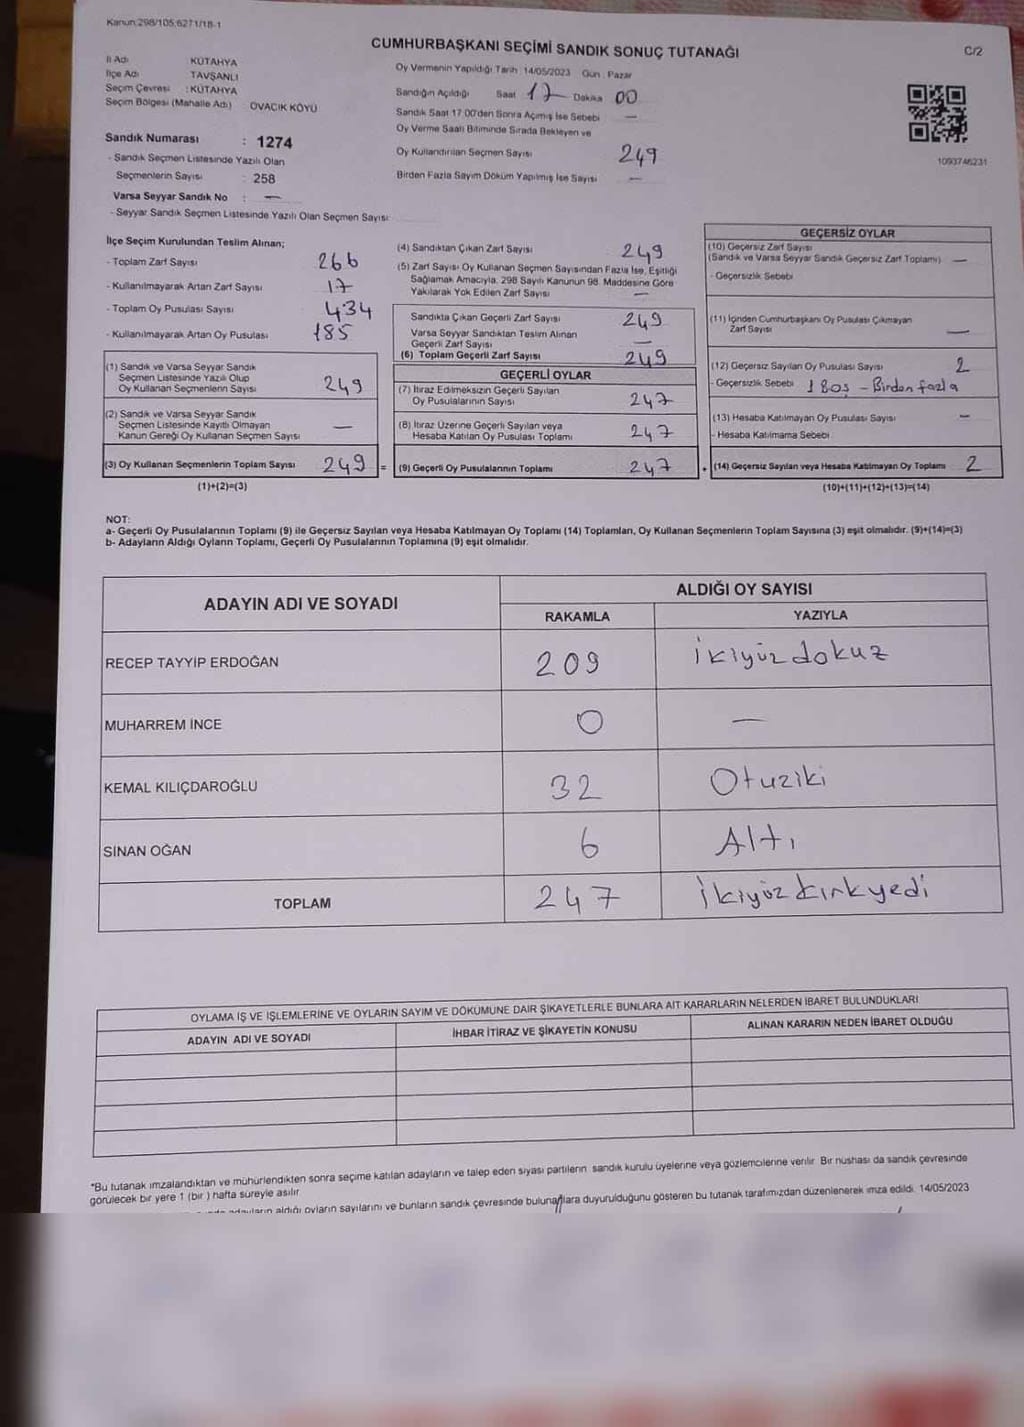 Kanun:298/105;6271/18-1
CUMHURBAŞKANI SEÇİMİ SANDIK SONUÇ TUTANAĞI
C/2
İl Adı KÜTAHYA
İlçe Adı TAVŞANLI
Seçim Çevresi : KÜTAHYA
Seçim Bölgesi (Mahalle Adı) OVACIK KÖYÜ
Sandık Numarası : 1274
- Sandık Seçmen Listesinde Yazılı Olan
Seçmenlerin Sayısı : 258
Varsa Seyyar Sandık No : —
- Seyyar Sandık Seçmen Listesinde Yazılı Olan Seçmen Sayısı:
Oy Vermenin Yapıldığı Tarih: 14/05/2023 Gün : Pazar
Sandığın Açıldığı Saat 17 Dakika 00
Sandık Saat 17.00'den Sonra Açımış İse Sebebi —
Oy Verme Saati Bitiminde Sırada Bekleyen ve
Oy Kullandırılan Seçmen Sayısı 249
Birden Fazla Sayım Döküm Yapılmış İse Sayısı —
1093746231
İlçe Seçim Kurulundan Teslim Alınan;
- Toplam Zarf Sayısı 266
- Kullanılmayarak Artan Zarf Sayısı 17
- Toplam Oy Pusulası Sayısı 434
- Kullanılmayarak Artan Oy Pusulası 185
(1) Sandık ve Varsa Seyyar Sandık
Seçmen Listesinde Yazılı Olup
Oy Kullanan Seçmenlerin Sayısı 249
(2) Sandık ve Varsa Seyyar Sandık
Seçmen Listesinde Kayıtlı Olmayan
Kanun Gereği Oy Kullanan Seçmen Sayısı —
(3) Oy Kullanan Seçmenlerin Toplam Sayısı 249 =
(1)+(2)=(3)
(4) Sandıktan Çıkan Zarf Sayısı 249
(5) Zarf Sayısı Oy Kullanan Seçmen Sayısından Fazla İse, Eşitliği
Sağlamak Amacıyla, 298 Sayılı Kanunun 98. Maddesine Göre
Yakılarak Yok Edilen Zarf Sayısı —
Sandıkta Çıkan Geçerli Zarf Sayısı 249
Varsa Seyyar Sandıktan Teslim Alınan
Geçerli Zarf Sayısı —
(6) Toplam Geçerli Zarf Sayısı 249
GEÇERLİ OYLAR
(7) İtiraz Edilmeksizin Geçerli Sayılan
Oy Pusulalarının Sayısı 247
(8) İtiraz Üzerine Geçerli Sayılan veya
Hesaba Katılan Oy Pusulası Toplamı 247
(9) Geçerli Oy Pusulalarının Toplamı 247 +
GEÇERSİZ OYLAR
(10) Geçersiz Zarf Sayısı
(Sandık ve Varsa Seyyar Sandık Geçersiz Zarf Toplamı) —
- Geçersizlik Sebebi
(11) İçinden Cumhurbaşkanı Oy Pusulası Çıkmayan
Zarf Sayısı —
(12) Geçersiz Sayılan Oy Pusulası Sayısı 2
- Geçersizlik Sebebi 1 Boş - Birden fazla
(13) Hesaba Katılmayan Oy Pusulası Sayısı —
- Hesaba Katılmama Sebebi
(14) Geçersiz Sayılan veya Hesaba Katılmayan Oy Toplamı 2
(10)+(11)+(12)+(13)=(14)
NOT:
a- Geçerli Oy Pusulalarının Toplamı (9) ile Geçersiz Sayılan veya Hesaba Katılmayan Oy Toplamı (14) Toplamları, Oy Kullanan Seçmenlerin Toplam Sayısına (3) eşit olmalıdır. (9)+(14)=(3)
b- Adayların Aldığı Oyların Toplamı, Geçerli Oy Pusulalarının Toplamına (9) eşit olmalıdır.
ADAYIN ADI VE SOYADI ALDIĞI OY SAYISI
RAKAMLA YAZIYLA
RECEP TAYYİP ERDOĞAN 209 ikiyüzdokuz
MUHARREM İNCE 0 —
KEMAL KILIÇDAROĞLU 32 Otuziki
SİNAN OĞAN 6 Altı
TOPLAM 247 ikiyüzkırkyedi
OYLAMA İŞ VE İŞLEMLERİNE VE OYLARIN SAYIM VE DÖKÜMÜNE DAİR ŞİKAYETLERLE BUNLARA AİT KARARLARIN NELERDEN İBARET BULUNDUKLARI
ADAYIN ADI VE SOYADI İHBAR İTİRAZ VE ŞİKAYETİN KONUSU ALINAN KARARIN NEDEN İBARET OLDUĞU
*Bu tutanak imzalandıktan ve mühürlendikten sonra seçime katılan adayların ve talep eden siyasi partilerin sandık kurulu üyelerine veya gözlemcilerine verilir. Bir nüshası da sandık çevresinde
görülecek bir yere 1 (bir ) hafta süreyle asılır.
adayların aldığı oyların sayılarını ve bunların sandık çevresinde bulunanlara duyurulduğunu gösteren bu tutanak tarafımızdan düzenlenerek imza edildi. 14/05/2023